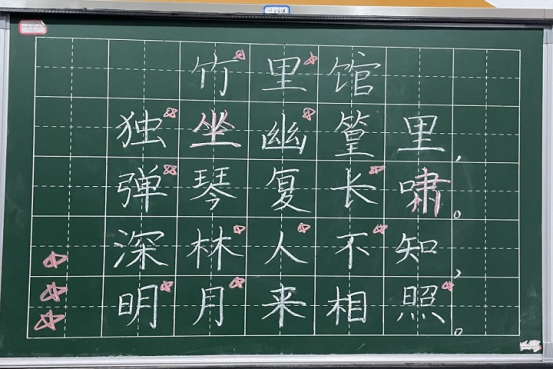 竹里馆
独坐幽篁里,
弹琴复长啸。
深林人不知,
明月来相照。